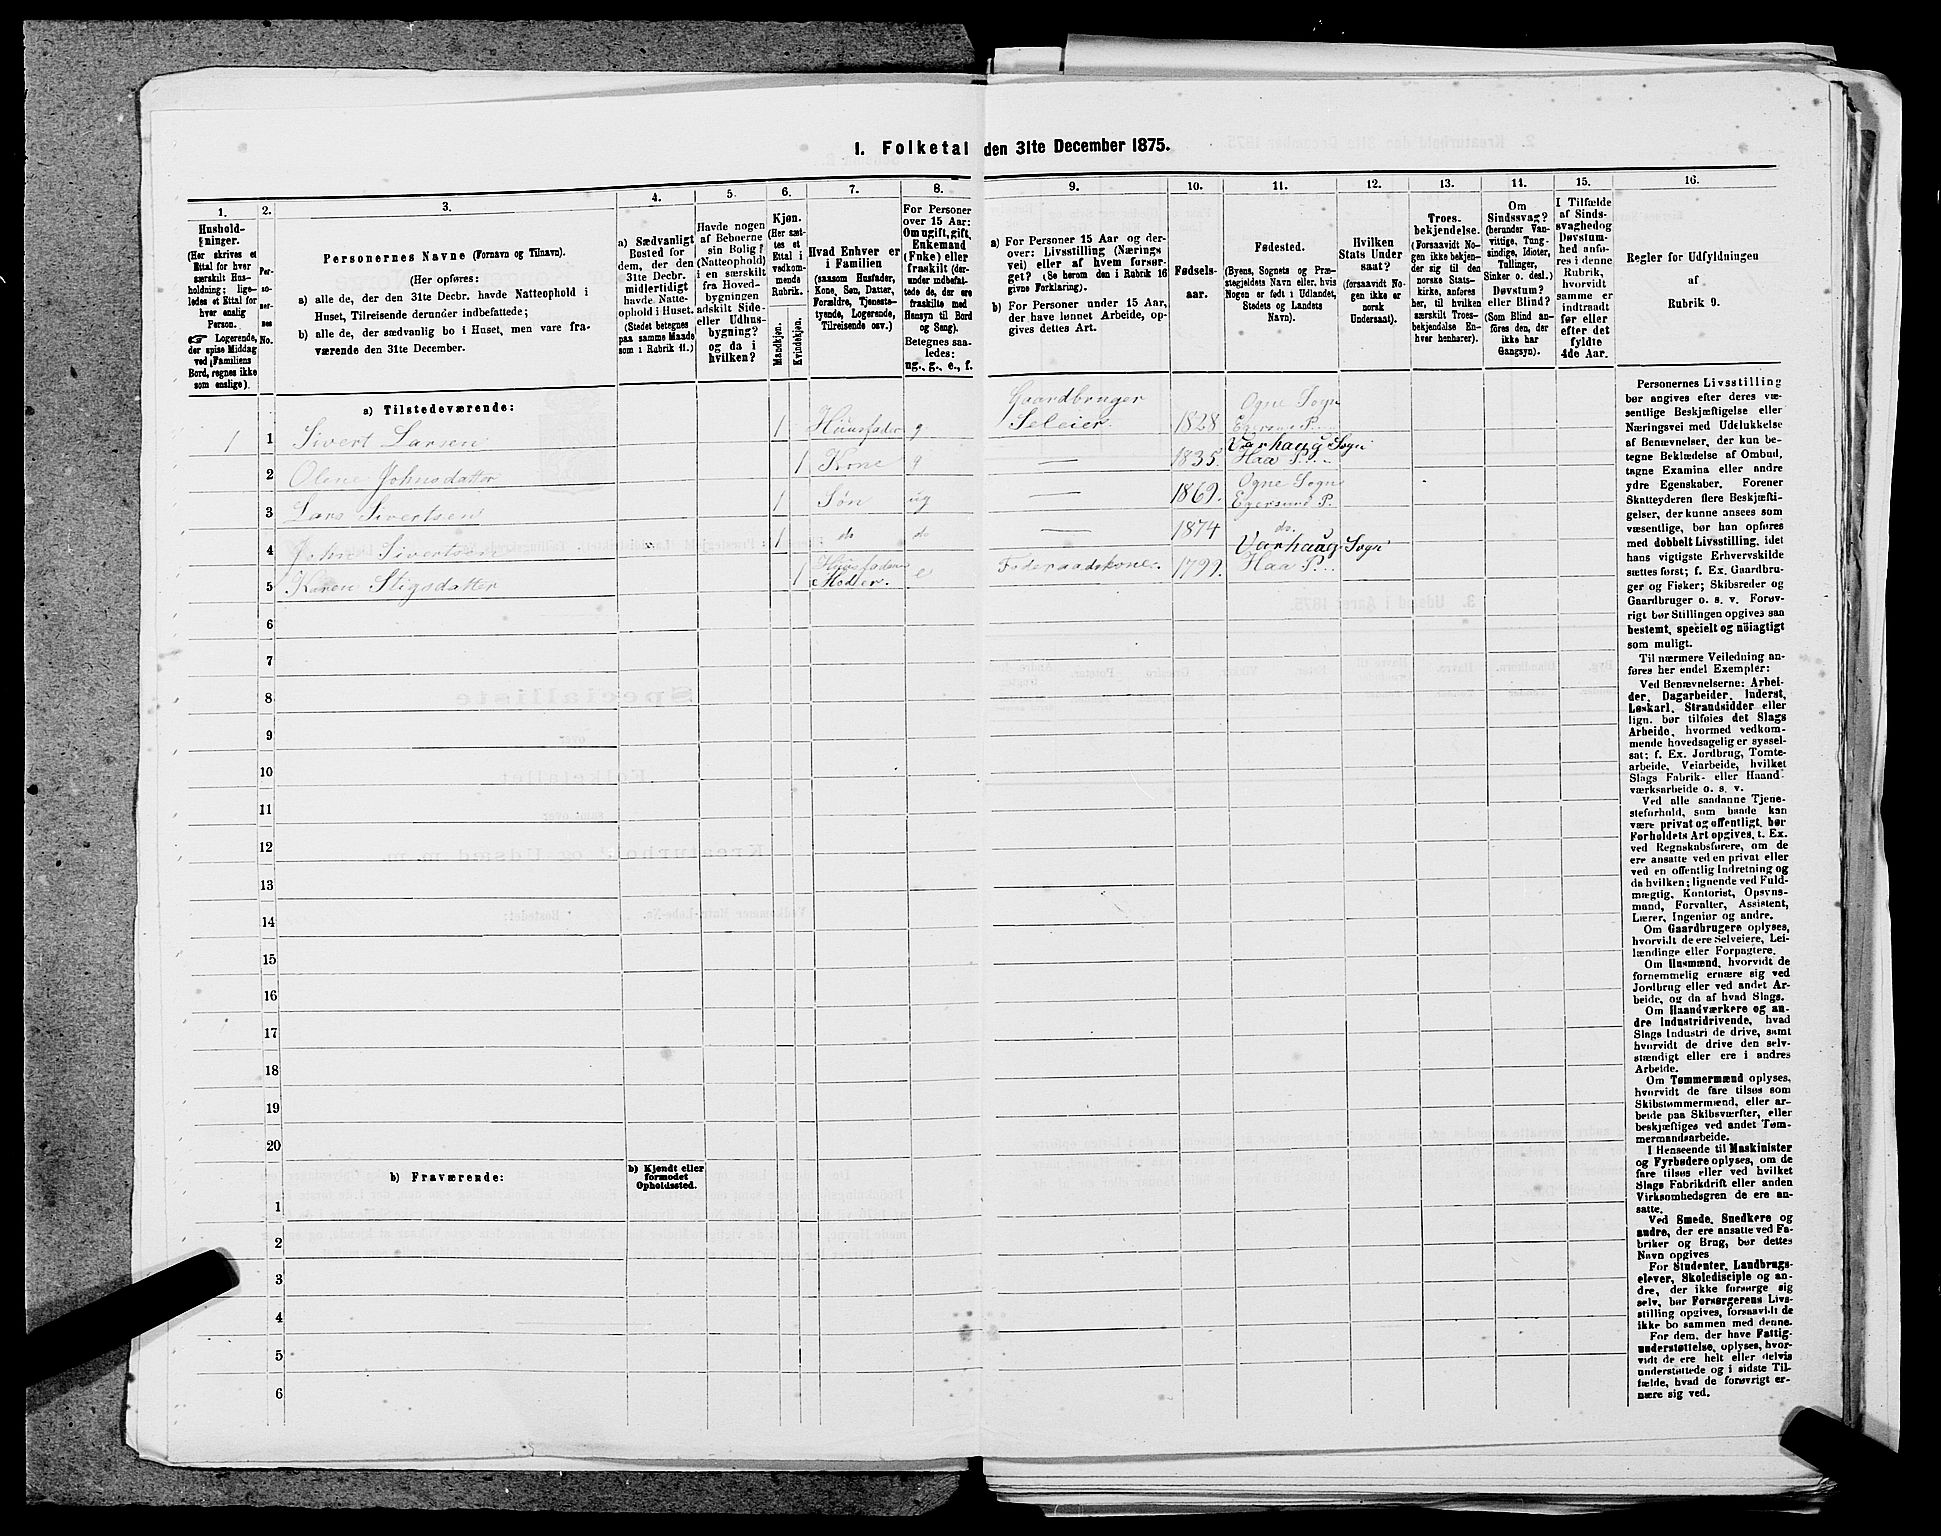 1. Folketal den 31te December 1875.
1.
2.
3.
4.
5.
6.
7.
8.
9.
10.
11.
12.
13.
14.
15.
16.
Hushold-
ninger.
(Her skrives et
Ettal for hver
særskilt Hus-
holdning; lige-
ledes et Ettal for
hver enslig
Person.
Logerende,
der spise Middag
ved Familiens
Bord, regnes ikke
som enslige).
Per-
so-
ner-
nes
No.
Personernes Navne (Fornavn og Tilnavn).
(Her opføres:
a) alle de, der den 31te Decbr. havde Natteophold i
Huset, Tilreisende derunder indbefattede;
b) alle de, der sædvanlig bo i Huset, men vare fra-
værende den 31te December.
a) Sædvanligt
Bosted for
dem, der den
31te Decbr.
midlertidigt
havde Natte-
ophold i Huset.
(Stedet betegnes
paa samme Maade
som i Rubrik 11.)
Havde nogen
af Beboerne
sin Bolig
(Natteophold)
i en særskilt
fra Hoved-
bygningen
adskilt Side-
eller Udhus-
bygning?
og da i
hvilken?
Kjøn.
(Her sæt-
tes et
Ettal i
vedkom-
mende
Rubrik.
Mandkjøn.
Kvindekjøn.
Hvad Enhver er
i Familien
(saasom Husfader,
Kone, Søn, Datter,
Forældre, Tjeneste-
tyende, Logerende,
Tilreisende osv.)
For Personer
over 15 Aar:
Om ugift, gift,
Enkemand
(Enke) eller
fraskilt (der-
under indbefat-
tede de, der ere
fraskilte med
Hensyn til Bord
og Seng).
Betegnes saa-
ledes:
ug., g., e., f.
a) For Personer 15 Aar og der-
over: Livsstilling (Nærings-
vei) eller af hvem forsør-
get? (Se herom den i Rubrik 16
givne Forklaring).
b) For Personer under 15 Aar,
der have lønnet Arbeide, op-
gives dettes Art.
Fødsels-
aar.
Fødested.
(Byens, Sognets og Præ-
stegjeldets Navn eller, hvis
Nogen er født i Udlandet,
Stedets og Landets
Navn).
Hvilken
Stats Under
saat?
(forsaavidt No-
gen ikke er
norsk
Undersaat).
Troes-
bekjendelse.
(Forsaavidt No-
gen ikke bekjen-
der sig til den
norske Stats-
kirke, anføres
her, til hvilken
særskilt Troes-
bekjendelse En-
hver henhører).
Om
Sindssvag?
(herunder Van-
vittige, Tung-
sindige, Idioter,
Tullinger,
Sinker o. desl.)
Døvstum?
eller Blind?
(Som Blind an-
føres den, der
ikke har
Gangsyn).
I Tilfælde
af Sinds-
svaghed og
Døvstum-
hed anfø-
res i denne
Rubrik,
hvorvidt
samme er
indtraadt
før eller
efter det
fyldte
4de Aar.
Regler for Udfyldningen
af
Rubrik 9.
a) Tilstedeværende:
1 1 Sivert Larsen 1 Huusfader g Gaardbruger Seleier. 1828 Ogne Sogn Egersund P.
2 Olene Johnsdatter 1 Kone g — 1835. Varhaug Sogn Haa P.
3 Lars Sivertsen 1 Søn ug — 1869. Ogne Sogn Egersund P.
4 John Sivertsen 1 do do — 1874 do.
5 Karen Stigsdatter 1 Huusfaders Moder. e Føderaadskone. 1799. Varhaug Sogn Haa P.
6
7
8
9
10
11
12
13
14
15
16
17
18
19
20
b) Fraværende:
b) Kjendt eller
formodet
Opholdssted.
1
2
3
4
5
6
Personernes Livsstilling
bør angives efter deres væ-
sentlige Beskjæftigelse eller
Næringsvei med Udelukkelse
af Benævnelser, der kun be-
tegne Beklædelse af Ombud,
tagne Examina eller andre
ydre Egenskaber. Forener
Skatteyderen flere Beskjæfti-
gelser, der kunne ansees som
væsentlige, bør han opføres
med dobbelt Livsstilling, idet
hans vigtigste Erhvervskilde
sættes først; f. Ex. Gaardbru-
ger og Fisker; Skibsreder og
Gaardbruger o. s. v. Forøv-
rigt bør Stillingen opgives saa
bestemt, specielt og nøiagtigt
som muligt.
Til nærmere Veiledning an-
føres her endel Exempler:
Ved Benævnelserne: Arbei-
der, Dagarbeider, Inderst,
Løskarl, Strandsidder eller
lign. bør tilføies det Slags
Arbeide, hvormed vedkom-
mende hovedsagelig er syssel-
sat; f. Ex. Jordbrug, Tomte-
arbeide, Veiarbeide, hvilket
Slags Fabrik- eller Haand-
værksarbeide o. s. v.
Ved alle saadanne Tjene-
steforhold, som baade kan
være privat og offentligt, bør
Forholdets Art opgives, t. Ex.
ved Regnskabsførere, om de
ere ansatte ved en privat eller
ved en offentlig Indretning og
da hvilken; lignende ved Fuld-
mægtig, Kontorist, Opsyns-
mand, Forvalter, Assistent,
Lærer, Ingeniør og andre.
Om Gaardbrugere oplyses,
hvorvidt de ere Selveiere, Lei-
lændinge eller Forpagtere.
Om Husmænd, hvorvidt de
fornemmelig ernære sig ved
Jordbrug eller ved andet Ar-
beide, og da af hvad Slags.
Om Haandværkere og an-
dre Industridrivende, hvad
Slags Industri de drive, samt
hvorvidt de drive den selv-
stændigt eller ere i andres
Arbeide.
Om Tømmermænd oplyses,
hvorvidt de fare tilsøs som
Skibstømmermænd, eller ar-
beide paa Skibsværfter, eller
beskjæftiges ved andet Tøm-
mermandsarbeide.
I Henseende til Maskinister
og Fyrbødere oplyses, om de
fare tilsøs eller ved hvilket
Slags Fabrikdrift eller anden
Virksomhedsgren de ere an-
satte.
Ved Smede, Snedkere og
andre, der ere ansatte ved Fa-
briker og Brug, bør dettes
Navn opgives
For Studenter, Landbrugs-
elever, Skoledisciple og an-
dre, der ikke forsørge sig
selv, bør Forsørgerens Livs-
stilling opgives, forsaavidt de
ikke bo sammen med denne.
For dem, der have Fattig-
understøttelse, oplyses, hvor-
vidt de ere helt eller delvis
understøttede og i sidste Til-
fælde, hvad de forøvrigt er-
nære sig ved.